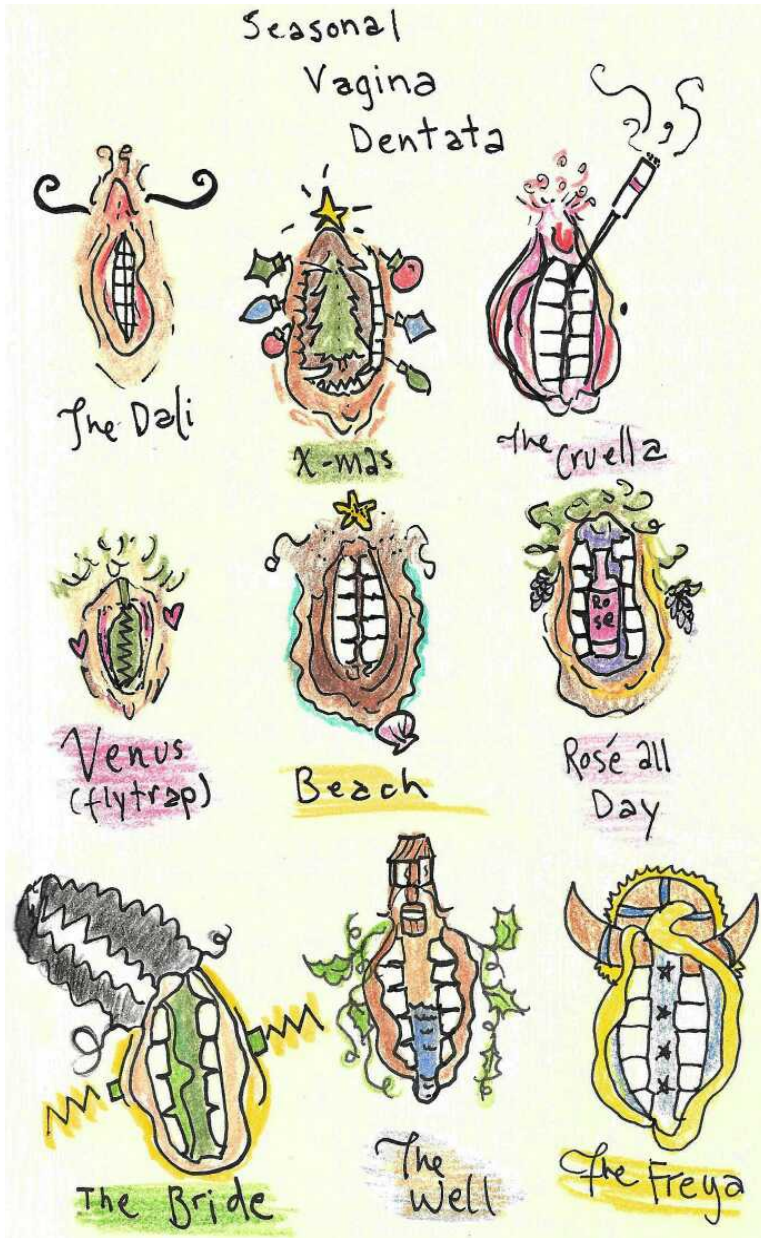 Seasonal
Vagina
Dentata
The Dali
X-mas
The Cruella
Ro
se
Venus
(flytrap)
Beach
Rosé all
Day
The Bride
The
Well
The Freya